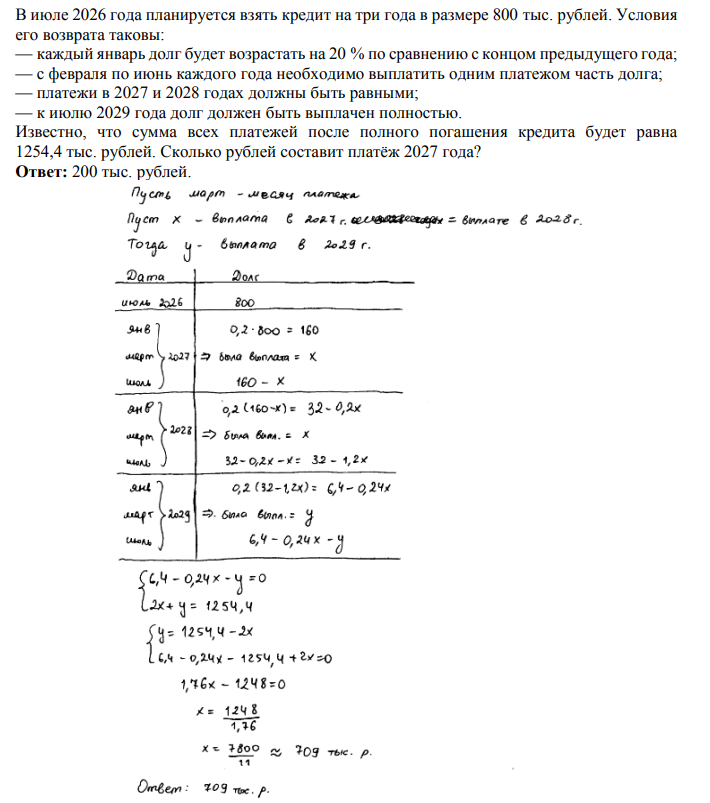 В июле 2026 года планируется взять кредит на три года в размере 800 тыс. рублей. Условия
его возврата таковы:
— каждый январь долг будет возрастать на 20 % по сравнению с концом предыдущего года;
— с февраля по июнь каждого года необходимо выплатить одним платежом часть долга;
— платежи в 2027 и 2028 годах должны быть равными;
— к июлю 2029 года долг должен быть выплачен полностью.
Известно, что сумма всех платежей после полного погашения кредита будет равна
1254,4 тыс. рублей. Сколько рублей составит платёж 2027 года?
Ответ: 200 тыс. рублей.
Пусть март - месяц платежа
Пуст x - выплата в 2027 г. = выплате в 2028 г.
Тогда y - выплата в 2029 г.
Дата Долг
июль 2026 800
янв 0,2·800 = 160
март 2027 ⇒ была выплата = x
июль 160 - x
янв 0,2(160-x) = 32-0,2x
март 2028 ⇒ была выпл. = x
июль 32-0,2x-x = 32-1,2x
янв 0,2(32-1,2x) = 6,4-0,24x
март 2029 ⇒ была выпл. = y
июль 6,4-0,24x-y
6,4-0,24x-y=0
2x+y=1254,4
y=1254,4-2x
6,4-0,24x-1254,4+2x=0
1,76x-1248=0
x = 1248/1,76
x = 7800/11 ≈ 709 тыс. р.
Ответ: 709 тыс. р.